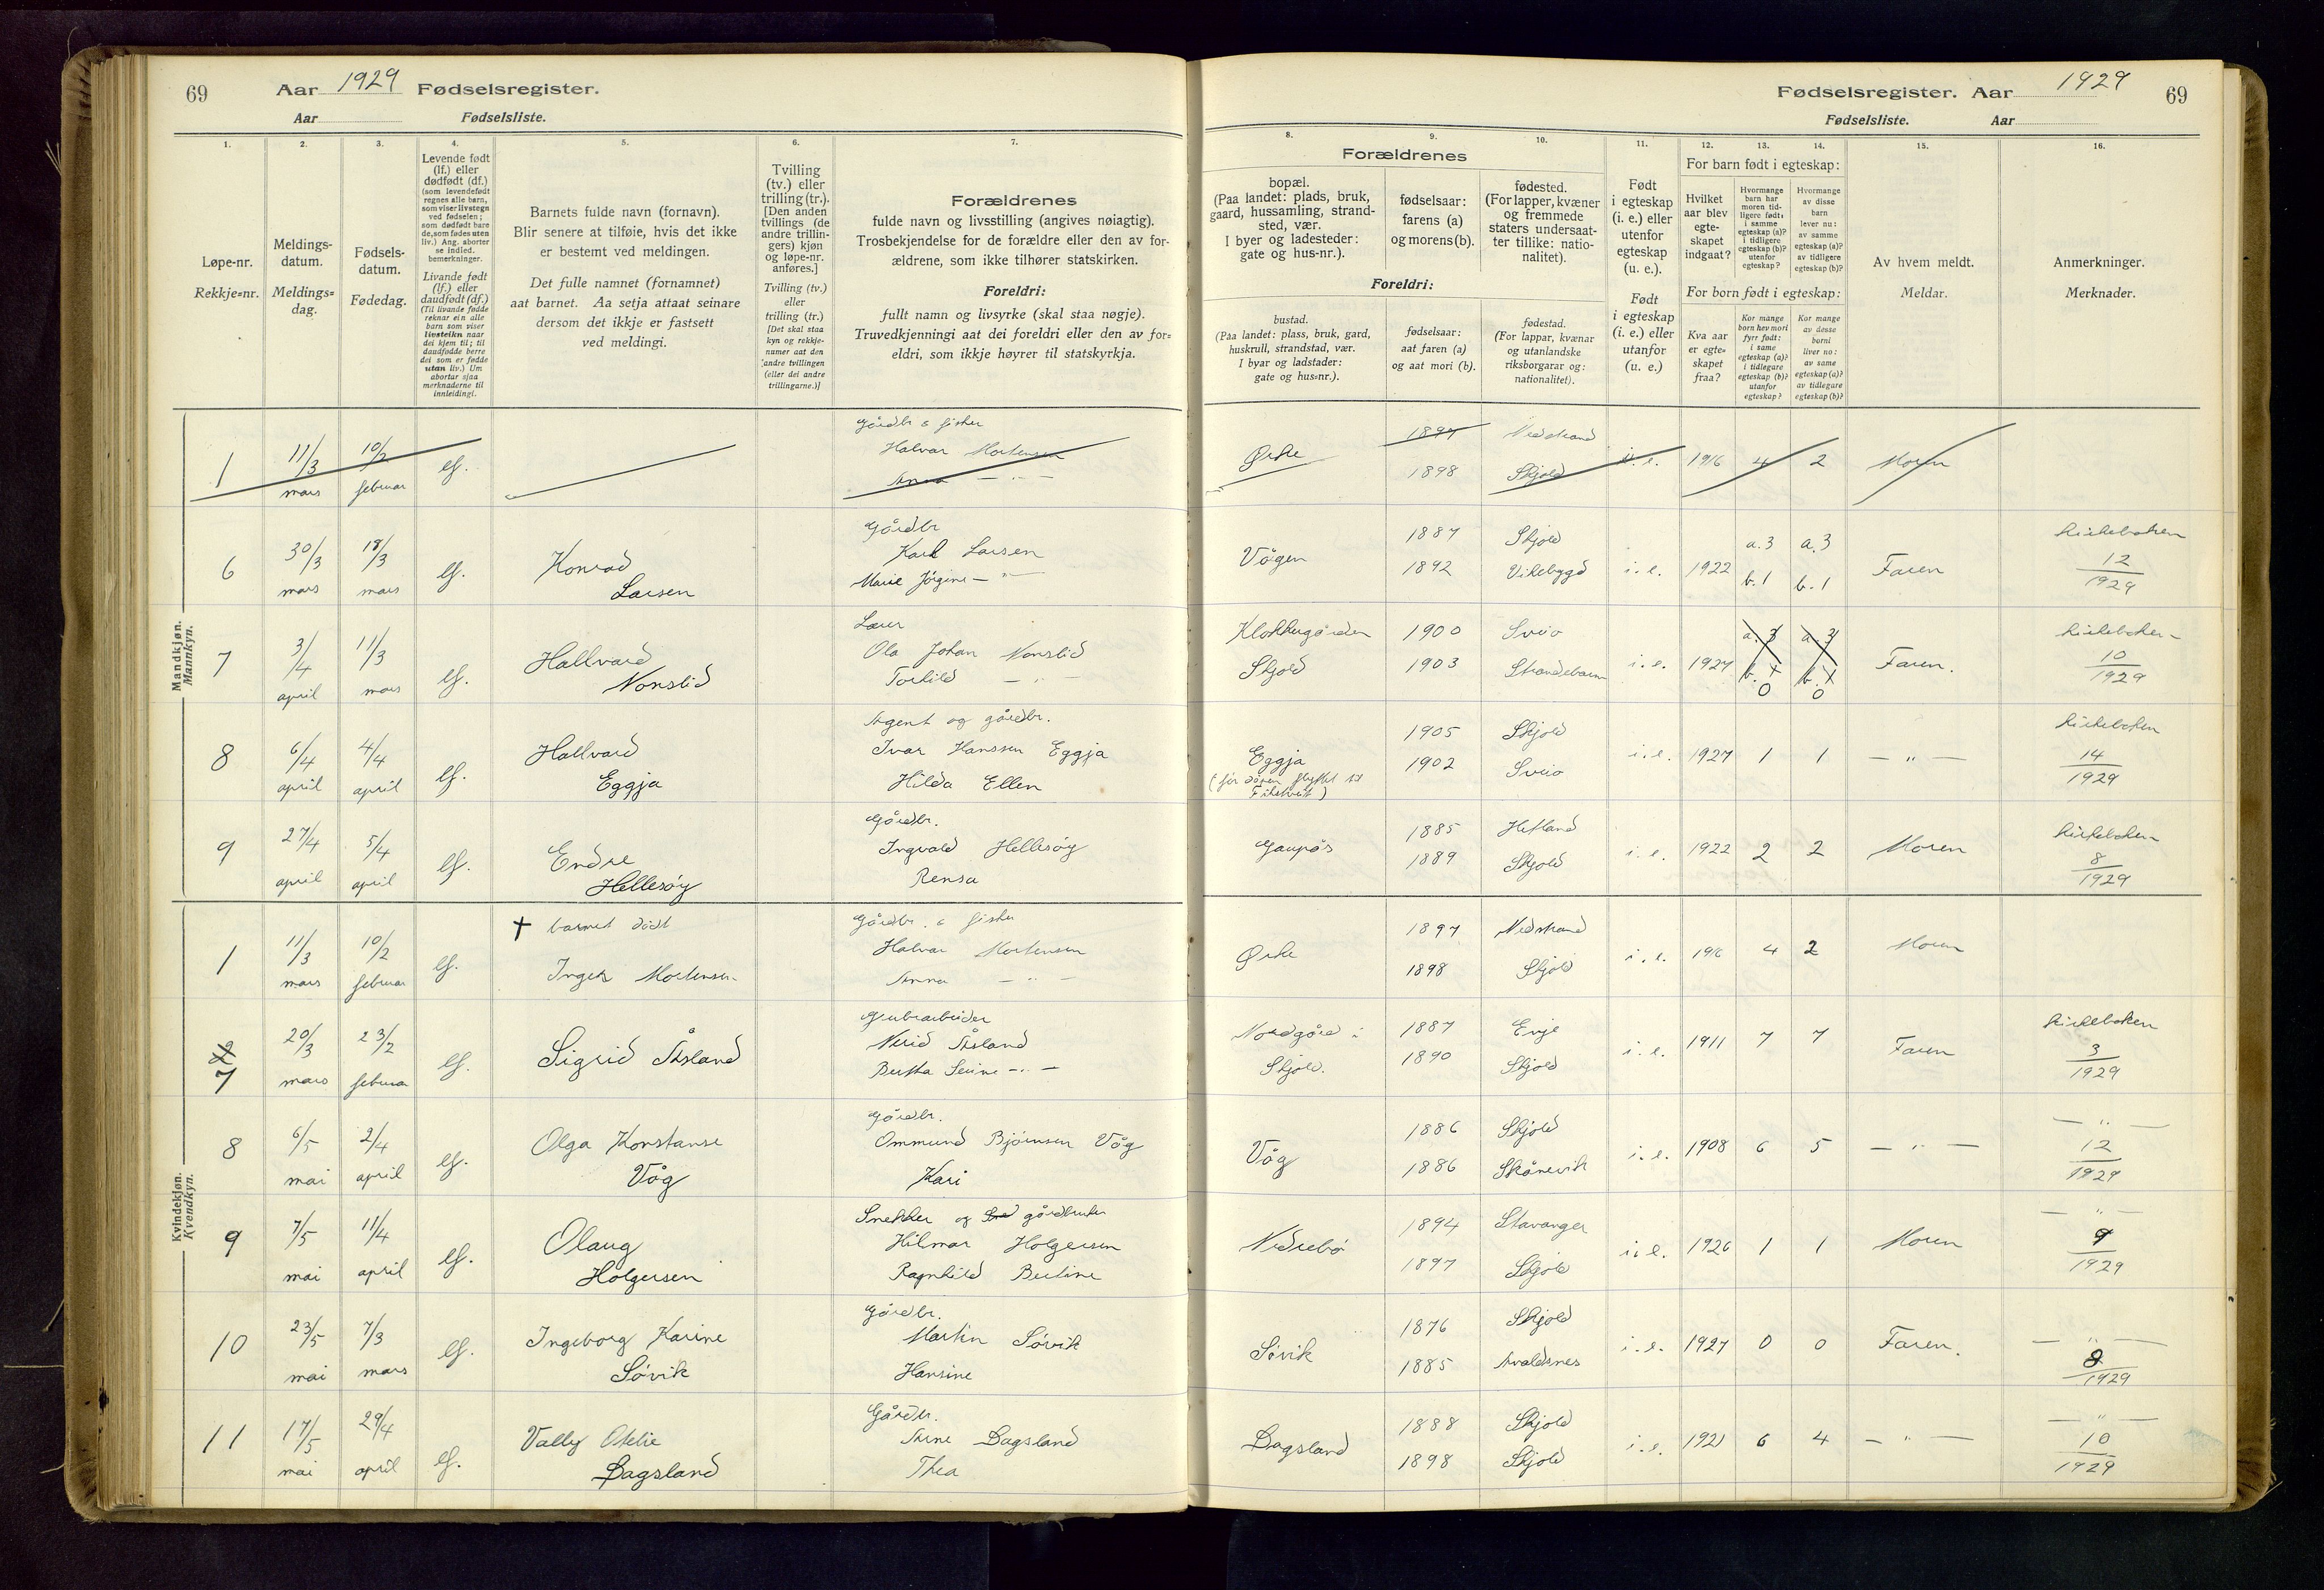 69 Aar 1929 Fødselsregister.
Aar Fødselsliste.
Fødselsregister. Aar 1929 69
Fødselsliste. Aar
1. 2. 3. 4. 5. 6. 7.
Løpe-nr.
Rekkje=nr.
Meldings-
datum.
Meldings=
dag.
Fødsels-
datum.
Fødedag.
Levende født
(lf.) eller
dødfødt (df.)
(som levendefødt
regnes alle barn,
som viser livstegn
ved fødselen;
som dødfødt bare
de, som fødes uten
liv.) Ang. aborter
se indled.
bemerkninger.
Livande født
(lf.) eller
daudfødt (df.)
(Til livande fødde
reknar ein alle
barn som viser
livsteikn naar
dei kjem til; til
daudfødde berre
dei som er fødde
utan liv.) Um
abortar sjaa
merknaderne til
innleidingi.
Barnets fulde navn (fornavn).
Blir senere at tilføie, hvis det ikke
er bestemt ved meldingen.
Det fulle namnet (fornamnet)
aat barnet. Aa setja attaat seinare
dersom det ikkje er fastsett
ved meldingi.
Tvilling
(tv.) eller
trilling (tr.).
[Den anden
tvillings (de
andre trillin-
gers) kjøn
og løpe-nr.
anføres.]
Tvilling (tv.)
eller
trilling (tr.)
[Det skal staa
kyn og rekkje-
numer aat den
andre tvillingen
(eller dei andre
trillingarne.)]
Forældrenes
fulde navn og livsstilling (angives nøiagtig).
Trosbekjendelse for de forældre eller den av for-
ældrene, som ikke tilhører statskirken.
Foreldri:
fullt namn og livsyrke (skal staa nøgje).
Truvedkjenningi aat dei foreldri eller den av for=
eldri, som ikkje høyrer til statskyrkja.
8. 9. 10. 11. 12. 13. 14. 15. 16.
Forældrenes
bopæl.
(Paa landet: plads, bruk,
gaard, hussamling, strand-
sted, vær.
I byer og ladesteder:
gate og hus-nr.).
fødselsaar:
farens (a)
og morens (b).
fødested.
(For lapper, kvæner
og fremmede
staters undersaat-
ter tillike: natio-
nalitet).
Foreldri:
bustad.
(Paa landet: plass, bruk, gard,
huskrull, strandstad, vær.
I byar og ladstader:
gate og hus=nr.).
fødselsaar:
aat faren (a)
og aat mori (b).
fødestad.
(For lappar, kvænar
og utanlandske
riksborgarar og:
nationalitet).
Født
i egteskap
(i. e.) eller
utenfor
egteskap
(u. e.).
Født
i egteskap
(i. e.) eller
utanfor
(u. e.)
For barn født i egteskap:
Hvilket
aar blev
egte-
skapet
indgaat?
Hvormange
barn har
moren tid-
ligere født:
i samme
egteskap (a)?
i tidligere
egteskap (b)?
utenfor
egteskap?
Hvormange
av disse
barn
lever nu:
av samme
egteskap (a)?
av tidligere
egteskap (b)?
For born født i egteskap:
Kva aar
er egte-
skapet
fraa?
Kor mange
born hev mori
fyrr født:
i same
egteskap (a)?
i tidlegare
egteskap (b)?
utanfor
egteskap?
Kor mange
av desse
borni
liver no:
av same
egteskap (a)?
av tidlegare
egteskap (b)?
Av hvem meldt.
Meldar.
Anmerkninger.
Merknader.
Mandkjøn.
Mannkyn.
Gårdbr & fisker
1 11/3 10/2 lf. Halvar Mortensen Ørke 1897 Nedstrand i. e. 1916 4 2 Moren
mars februar Anna — " — 1898 Skjold
Gårdbr
6 30/3 18/3 lf. Konrad Karl Larsen Vågen 1887 Skjold i. e. 1922 a. 3 a. 3 Faren kirkeboken 12
mars mars Larsen Marie Jørgine — " — 1892 Vikebygd b. 1 b. 1 1929
Lærer
7 3/4 11/3 lf. Hallvard Ola Johan Nonslid Klokkergården 1900 Sveio i. e. 1927 a. 3 a. 3 Faren. kirkeboken 10
april mars Nonslid Torhild — " — Skjold 1903 Strandebarm 0 0 1929
Agent og gårdbr.
8 6/4 4/4 lf. Hallvard Ivar Hanssen Eggja Eggja 1905 Skjold i. e. 1927 1 1 — " — kirkeboken 14
april april Eggja Hilda Ellen 1902 Sveio 1929
Gårdbr.
9 27/4 5/4 lf. Endre Ingvald Hellesøy Gaupås 1885 Hetland i. e. 1922 2 2 Moren kirkeboken 8
april april Hellesøy Rensa 1889 Skjold 1929
Kvindekjøn.
Kvendkyn.
† barnet dødt Gårdbr. & fisker
1 11/3 10/2 lf. Inger Mortensen Halvar Mortensen Ørke 1897 Nedstrand i. e. 1916 4 2 Moren
mars februar Anna — " — 1898 Skjold
Grubearbeider
2 7 20/3 23/2 lf. Sigrid Åsland Åsland Nordgård i 1887 Evje i. e. 1911 7 7 Faren kirkeboken 3
mars februar Bertha Serine — " — Skjold. 1890 Skjold 1929
Gårdbr.
8 6/5 2/4 lf. Olga Konstanse Ommund Bjørnsen Våg Våg 1886 Skjold i. e. 1908 6 5 — " — — " — 12
mai april Våg Kari 1886 Skånevik 1929
Snekker og gårdbruker
9 7/5 11/4 lf. Olaug Hilmar Holgersen Nedrebø 1894 Stavanger i. e. 1926 1 1 Moren — " — 9
mai april Holgersen Ragnhild Bertine 1897 Skjold 1929
Gårdbr.
10 23/5 7/3 lf. Ingeborg Karine Martin Søvik Søvik 1876 Skjold i. e. 1927 0 0 Faren. — " — 8
mai mars Søvik Hansine 1885 Avaldsnes 1929
Gårdbr.
11 17/5 29/4 lf. Vally Otelie Arne Dagsland Dagsland 1888 Skjold i. e. 1921 6 4 — " — — " — 10
mai april Dagsland Thea 1898 Skjold 1929